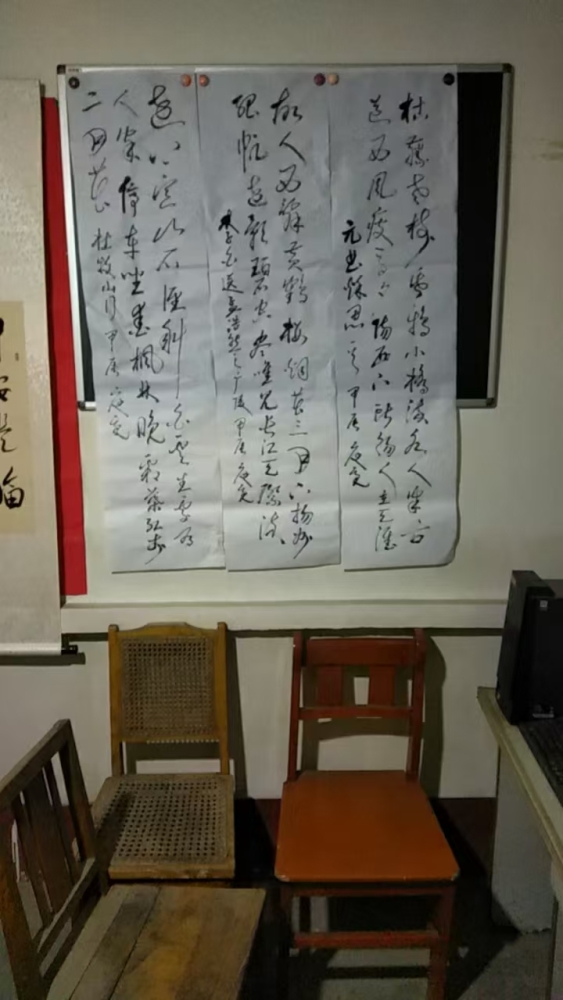 枯藤老树昏鸦小桥流水人家古
道西风瘦马夕阳西下断肠人在天涯
元曲秋思 甲辰
故人西辞黄鹤楼烟花三月下扬州
孤帆远影碧空尽唯见长江天际流
李白送孟浩然之广陵 甲辰
远上寒山石径斜白云生处有
人家停车坐爱枫林晚霜叶红于
二月花 杜牧山行 甲辰
平安是福